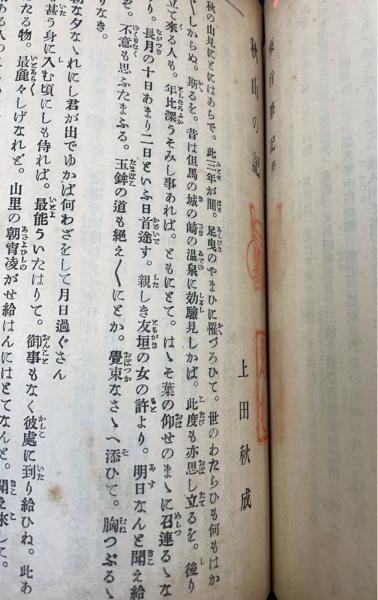 秋山の記
上田秋成
秋の山見にとにはあらで。此三年が間。足曳のやまひに罹づろひて。世のわたらひも何もはか
〲しからぬ。斯るを。昔は但馬の城の崎の温泉に効驗見しかば。此度も亦思し立るを。後り
立て來る人も。年比深うそみし事あれば。ともにとて。はゝそ葉の仰せのまゝに召連るゝな
り。長月の十日あまり二日といふ日首途す。親しき友垣の女の許より。明日なんと聞え給
ぞ。不意も思ふたまふる。玉鉾の道も絶え〱にとか。覺束なさゝへ添ひて。胸つぶるゝ
りなき。
朝な夕なゝれにし君が出でゆかば何わざをして月日過ぐさん
甚う身に入む頃にしも侍れば。最能ういたはりて。御事もなく彼處に到り給ひね。此あ
たる物。最麁々しげなれど。山里の朝宵凌がせ給はんにはとてなんと。聞え來して。